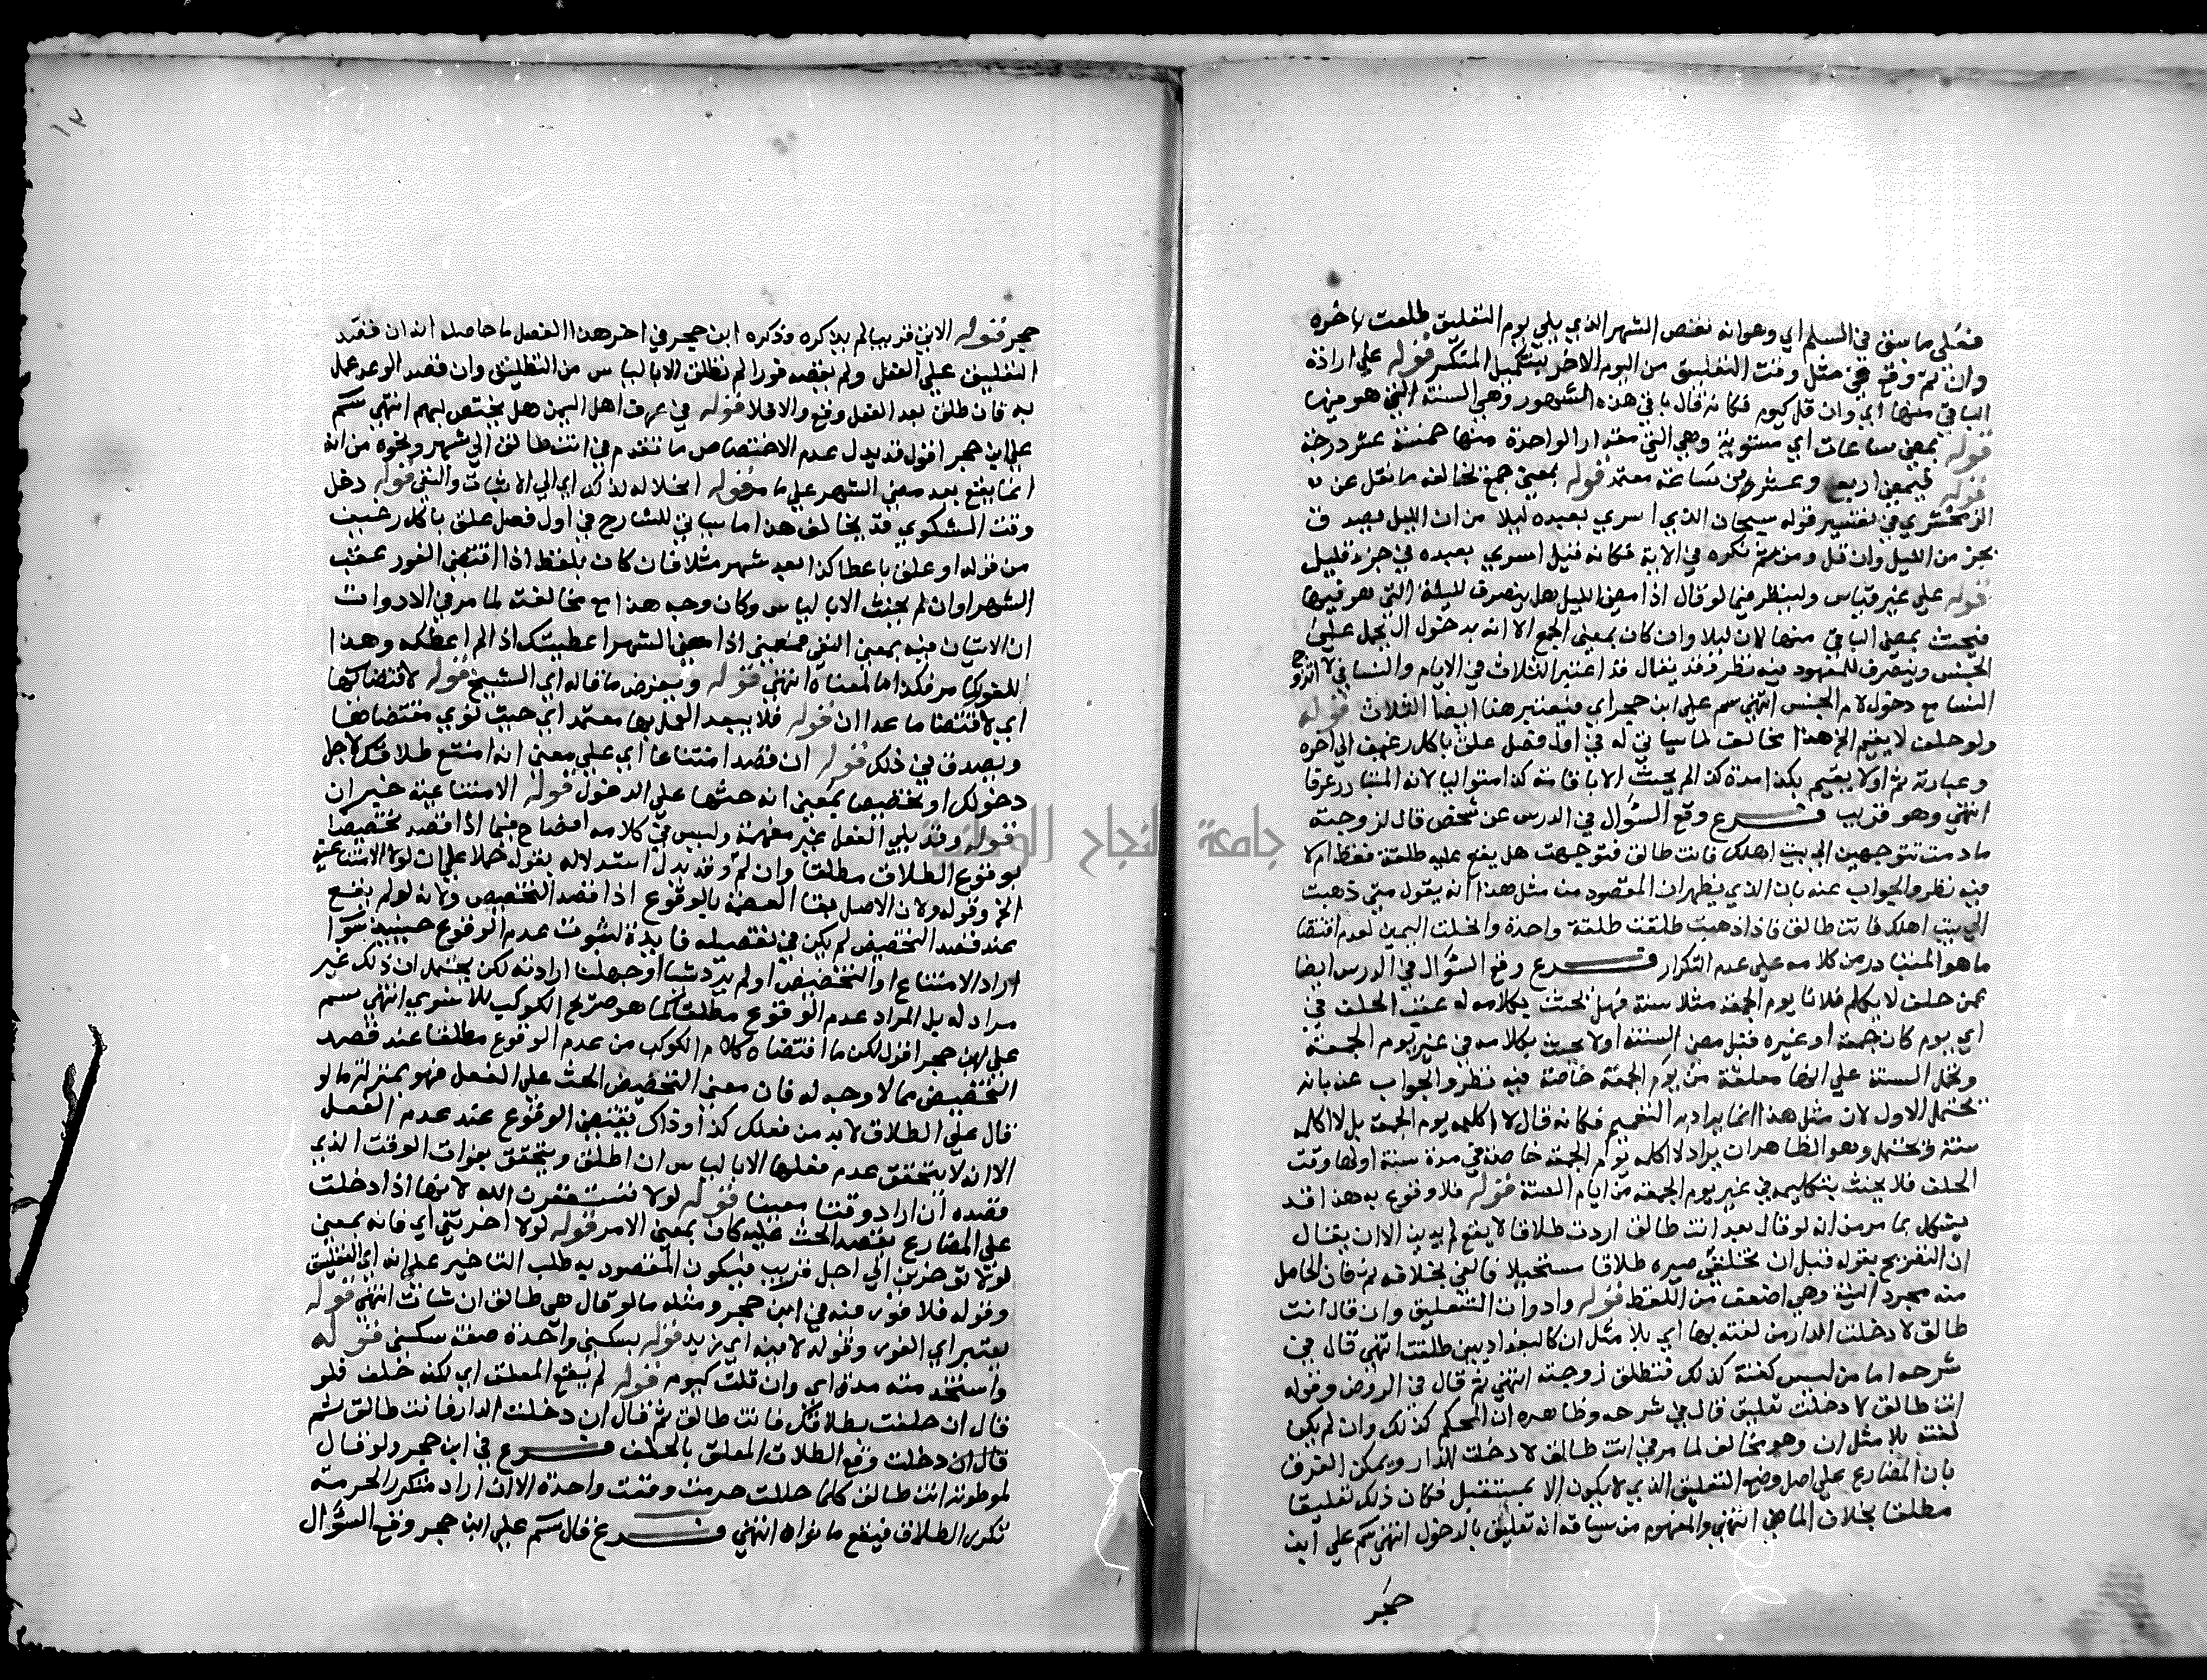 فعلي ما سبق في السلم اي وهو انه نقص الشهر الذي يلي يوم التعليق طلقت باخره
وان تم وقع في مثل وقت التعليق من اليوم الاخر بتكميل المنكسر قوله علي ارادة
الباقي منها اي وان قل كيوم فكانه قال باقي هذه الشهور وهي السنة التي هو فيها
قوله بمضي ساعات اي مستوية وهي التي مقدار الواحدة منها خمسة عشر درجة
قوله فبمضي اربع وعشرين ساعة معتمد قوله بمعني جمع تخالفه ما نقل عن
الزمخشري في تفسير قوله سبحان الذي اسري بعبده ليلا من ان الليل يصدق
بجزء من الليل وان قل ومن ثم نكره في الاية فكانه قيل اسري بعبده في جزء قليل
قوله علي غير قياس ولينظر فيما لو قال اذا مضي الليل هل ينصرف لليلة التي هو فيها
فيحنث بمضي الباقي منها لان ليلا وان كان بمعني الجمع الا انه بدخول ال يحمل علي
الجنس وينصرف للمعهود فيه نظر فقد يقال قد اعتبر الثلاث في الايام والنسا في لا اتزوج
النسا مع دخول لام الجنس انتهي سم علي ابن حجر اي فيعتبر هنا ايضا الثلاث قوله
ولو حلف لا يقيم الخ هذا مخالف لما سياتي له في اول فصل علق باكل رغيف الي اخره
وعبارته ثم اولا يقيم بكذا مدة كذا لم يحنث الا باقامة كذا متواليا لانه المتبادر عرفا
انتهي وهو قريب فرع وقع السؤال في الدرس عن شخص قال لزوجته
ما دمت تتوجهين الي بيت اهلك فانت طالق فتوجهت هل يقع عليه طلقة فقط ام لا
فيه نظر والجواب عنه بان الذي يظهر ان المقصود من مثل هذا انه يقول متي ذهبت
الي بيت اهلك فانت طالق فاذا ذهبت طلقت طلقة واحدة وانحلت اليمين لعدم اقتضا
ما هو المتبادر من كلامه علي عدم التكرار فرع وقع السؤال في الدرس ايضا
عمن حلف لا يكلم فلانا يوم الجمعة مثلا سنة فهل يحنث بكلامه له عقب الحلف في
اي يوم كان جمعة او غيره قبل مضي السنة او لا يحنث بكلامه في غير يوم الجمعة
وتحمل السنة علي انها معلقة من يوم الجمعة خاصة فيه نظر والجواب عنه بانه
يحتمل الاول لان مثل هذا انما يراد به التعميم فكانه قال لا اكلمه يوم الجمعة بل لا اكلمه
سنة ويحتمل وهو الظاهر ان يراد لا اكلمه يوم الجمعة خاصة في مدة سنة اولها وقت
الحلف فلا يحنث بتكليمه في غير يوم الجمعة من ايام السنة قوله فلا وقوع به هذا قد
يشكل بما مر من انه لو قال بعد انت طالق اردت طلاقا لا يقع لم يدين الا ان يقال
ان التفريع بقوله قبل ان تخلقي صيره طلاقا مستحيلا فالغي بخلافه ثم فان الحاصل
منه مجرد النية وهي اضعف من اللفظ قوله وادوات التعليق وان قال انت
طالق لا دخلت الدار من لغته بها اي بلا مثل ان كالبغداديين طلقت انتهي قال في
شرحه اما من ليس لغته كذلك فتطلق زوجته انتهي ثم قال في الروض وقوله
انت طالق لا دخلت تعليق قال في شرحه وظاهره ان الحكم كذلك وان لم يكن
لغته بلا مثل ان وهو مخالف لما مر في انت طالق لا دخلت الدار ويمكن الفرق
بان المضارع علي اصل وضع التعليق الذي لا يكون الا بمستقبل فكان ذلك تعليقا
مطلقا بخلاف الماضي انتهي والمفهوم من سياقه انه تعليق بالدخول انتهي سم علي ابن
حجر
١٧
حجر قوله الاتي قريبا لم يذكره وذكره ابن حجر في اخر هذا الفصل ما حاصله انه ان قصد
التعليق علي الفعل ولم يقصد فورا لم تطلق الا بالياس من التطليق وان قصد الوعد عمل
به فان طلق بعد الفعل وقع والا فلا قوله في عرف اهل اليمن هل يختص بهم انتهي سم
علي ابن حجر اقول قد يدل عدم الاختصاص ما تقدم في انت طالق الي شهر ونحوه من انه
انما يقع بعد مضي الشهر علي ما مر قوله انحلاله لذلك اي الي الاثبات والنفي قوله دخل
وقت الشكوي قد يخالف هذا ما سياتي للشارح في اول فصل علق باكل رغيف
من قوله او علق باعطا كذا بعد شهر مثلا فان كان بلفظ اذا اقتضي الفور عقب
الشهر او ان لم يحنث الا بالياس وكان وجه هذا مع مخالفته لما مر في الادوات
ان الاثبات فيه بمعني النفي فمعني اذا مضي الشهر اعطيتك اذا لم اعطكه وهذا
للفور كما مر فكذا ما لمعناه انتهي قوله وبفرض ما قاله اي الشيخ قوله لاقتضائها
اي لاقتضا ما عدا ان قوله فلا يبعد العمل بها معتمد اي حيث نوي مقتضاها
ويصدق في ذلك قوله ان قصد امتناعا اي علي معني انه امتنع طلاقك لاجل
دخولك او تخصيصا بمعني انه حثها علي الدخول قوله الامتناعية خبر ان
قوله وقد يلي الفعل غير مفهمة وليس في كلامه افصاح فيما اذا قصد تخصيصا
بوقوع الطلاق مطلقا وان لم وقد يدل استدلاله بقوله حملا علي ان لولا الامتناعية
الخ وقوله ولان الاصل بقا العصمة بالوقوع اذا قصد التخصيص ولانه لو لم يقع
عند قصد التخصيص لم يكن في تفصيله فايدة لثبوت عدم الوقوع حينيذ سوا
اراد الامتناع او التخصيص او لم يرد شيا او جهلنا ارادته لكن يحتمل ان ذلك غير
مراد له بل المراد عدم الوقوع مطلقا كما هو صريح الكوكب للاسنوي انتهي سم
علي ابن حجر اقول لكن ما اقتضاه كلام الكوكب من عدم الوقوع مطلقا عند قصد
التخصيص مما لا وجه له فان معني التخصيص الحث علي الفعل فهو بمنزلة ما لو
قال علي الطلاق لا بد من فعلك كذا وذاك يقتضي الوقوع عند عدم الفعل
الا انه لا يتحقق عدم فعلها الا بالياس ان اطلق ويتحقق بفوات الوقت الذي
قصده ان اراد وقتا معينا قوله لولا تستغفرون الله لانها اذا دخلت
علي المضارع بقصد الحث عليه كان بمعني الامر قوله لولا اخرتني اي فانه بمعني
لولا تؤخرني الي اجل قريب فيكون المقصود به طلب التاخير علي انه اي التعليق
وقوله فلا فور منه في ابن حجر ومثله ما لو قال هي طالق ان شات انتهي قوله
يعتبر اي الفور وقوله لا منه اي زيد قوله بسكني واحدة صفة سكني قوله
واستخدمته مدة اي وان قلت كيوم قوله لم يقع المعلق اي لكنه حلف فلو
قال ان حلفت بطلاقك فانت طالق ثم قال ان دخلت الدار فانت طالق ثم
قال ان دخلت وقع الطلاق المعلق بالحلف فرع في ابن حجر ولو قال
لموطوءته انت طالق كلما حللت حرمت وقعت واحدة الا ان اراد بتكرر الحرمة
تكرر الطلاق فيقع ما نواه انتهي فرع قال سم علي ابن حجر وقع السؤال
جامعة النجاح الوطنية